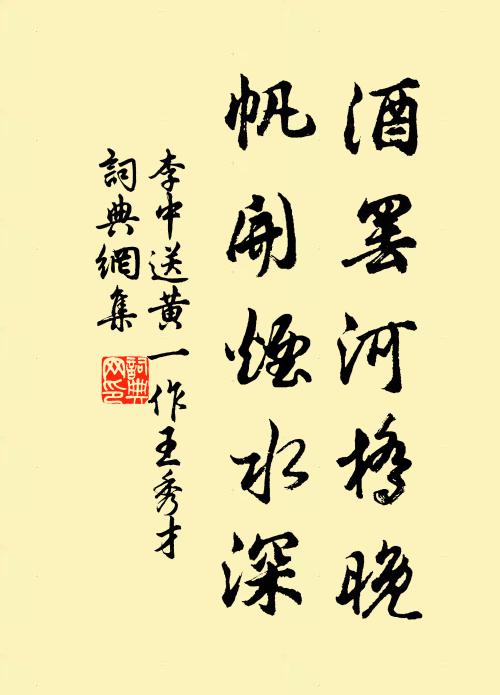 酒罢河橋晚
帆開煙水深
李中送黄一作王秀才
詞典網集
詞典網印